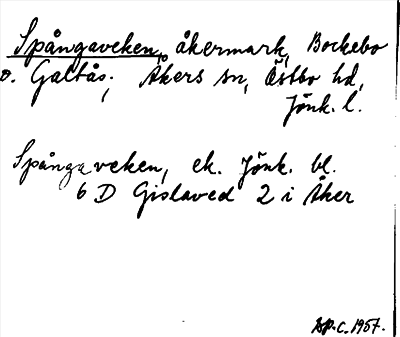 Spångaveken, åkermark, Bockebo
o. Galtås; Åkers sn, Östbo hd,
Jönk. l.
Spångaveken, ek. Jönk. bl.
6 D Gislaved 2 i Åker
c. 1957.